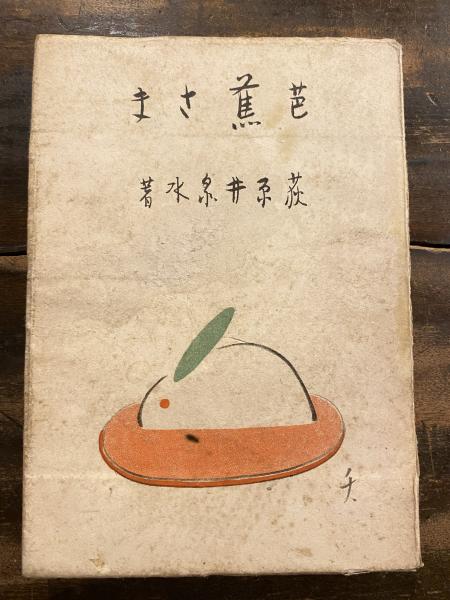 芭蕉さま
荻原井泉水著